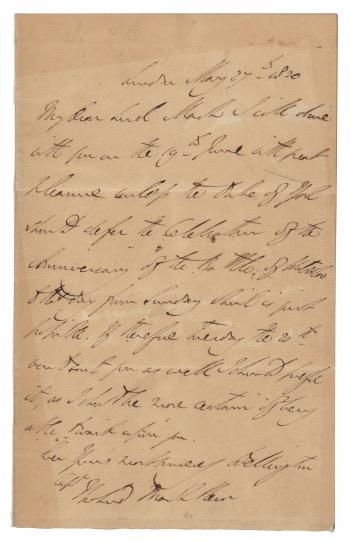 London May 27th 1820
My Dear Lord Maryborough I will dine
with you on the 19th June with great
Pleasure unless the Duke of York
should defer the Celebration of the
Anniversary of the Battle of Waterloo
to that day from Sunday which is just
possible. If therefore Tuesday the 20th
would suit you as well I should prefer
it; as I should be more certain of being
able to wait upon you.
Ever Yours most sincerely Wellington
The Lord